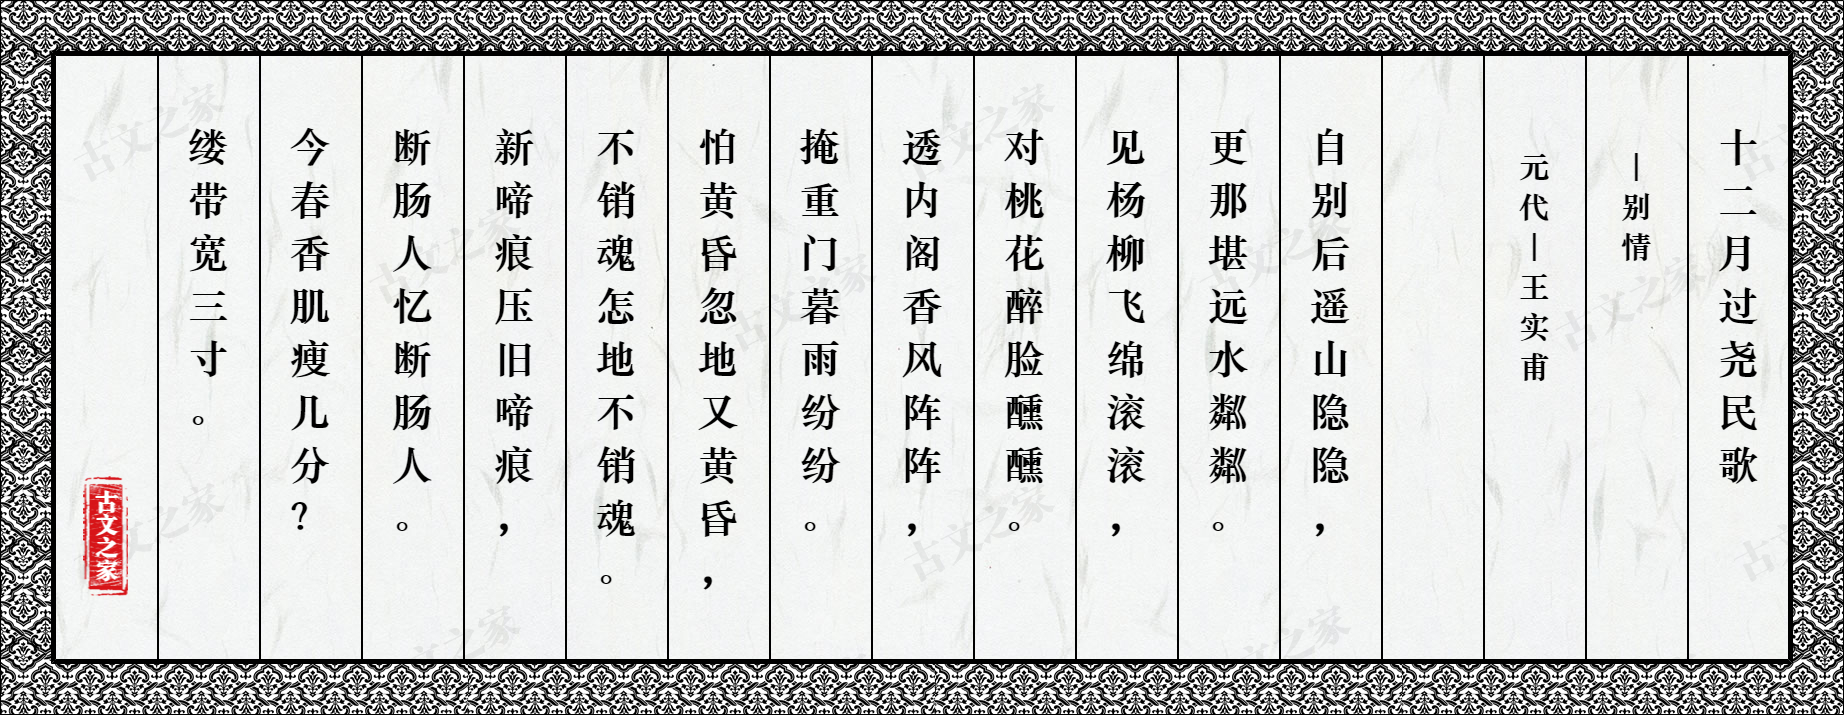 十二月过尧民歌
—别情
元代—王实甫
自别后遥山隐隐，
更那堪远水粼粼。
见杨柳飞绵滚滚，
对桃花醉脸醺醺。
透内阁香风阵阵，
掩重门暮雨纷纷。
怕黄昏忽地又黄昏，
不销魂怎地不销魂。
新啼痕压旧啼痕，
断肠人忆断肠人。
今春香肌瘦几分？
缕带宽三寸。
古文之家